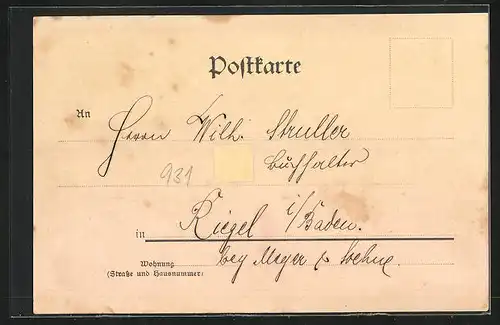 Postkarte
An
Herrn Wilh. Struller
Buchhalter
931
Riegel i/Baden.
in
bey Meyer & Soehne.
Wohnung
(Straße und Hausnummer)